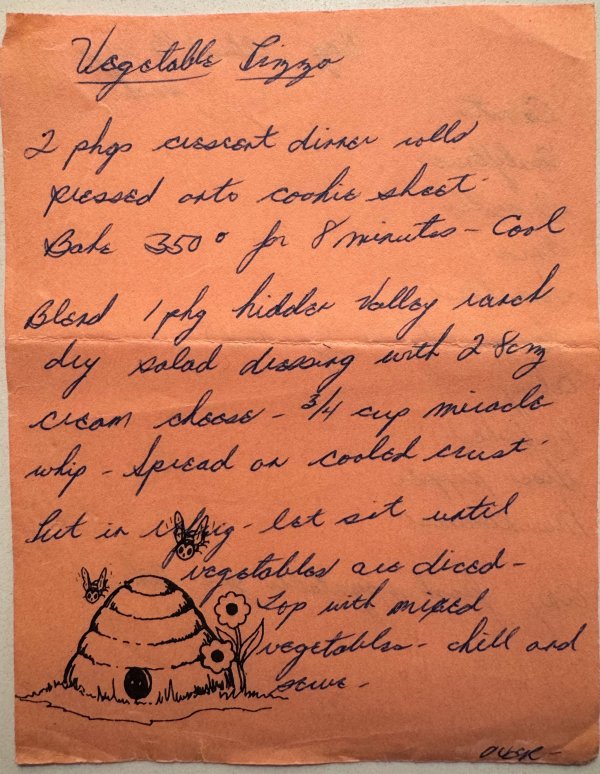 Vegetable Pizza
2 phgs crescent dinner rolls
pressed onto cookie sheet.
Bake 350° for 8 minutes - Cool
Blend 1 phg hidden Valley ranch
dry salad dressing with 2 8oz
cream cheese - 3/4 cup miracle
whip - Spread on cooled crust.
Put in - let sit until
vegetables are diced -
Top with mixed
vegetables - chill and
serve -
OVER -